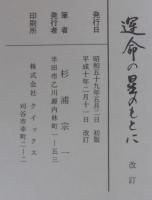 運命の星のもとに 改訂
発行日 昭和五十九年五月二日 初版
平成十年二月十一日 改訂
筆者
発行者 杉浦宗一
半田市乙川源内林町一―五三
印刷所 株式会社クイックス
刈谷市幸町二―二